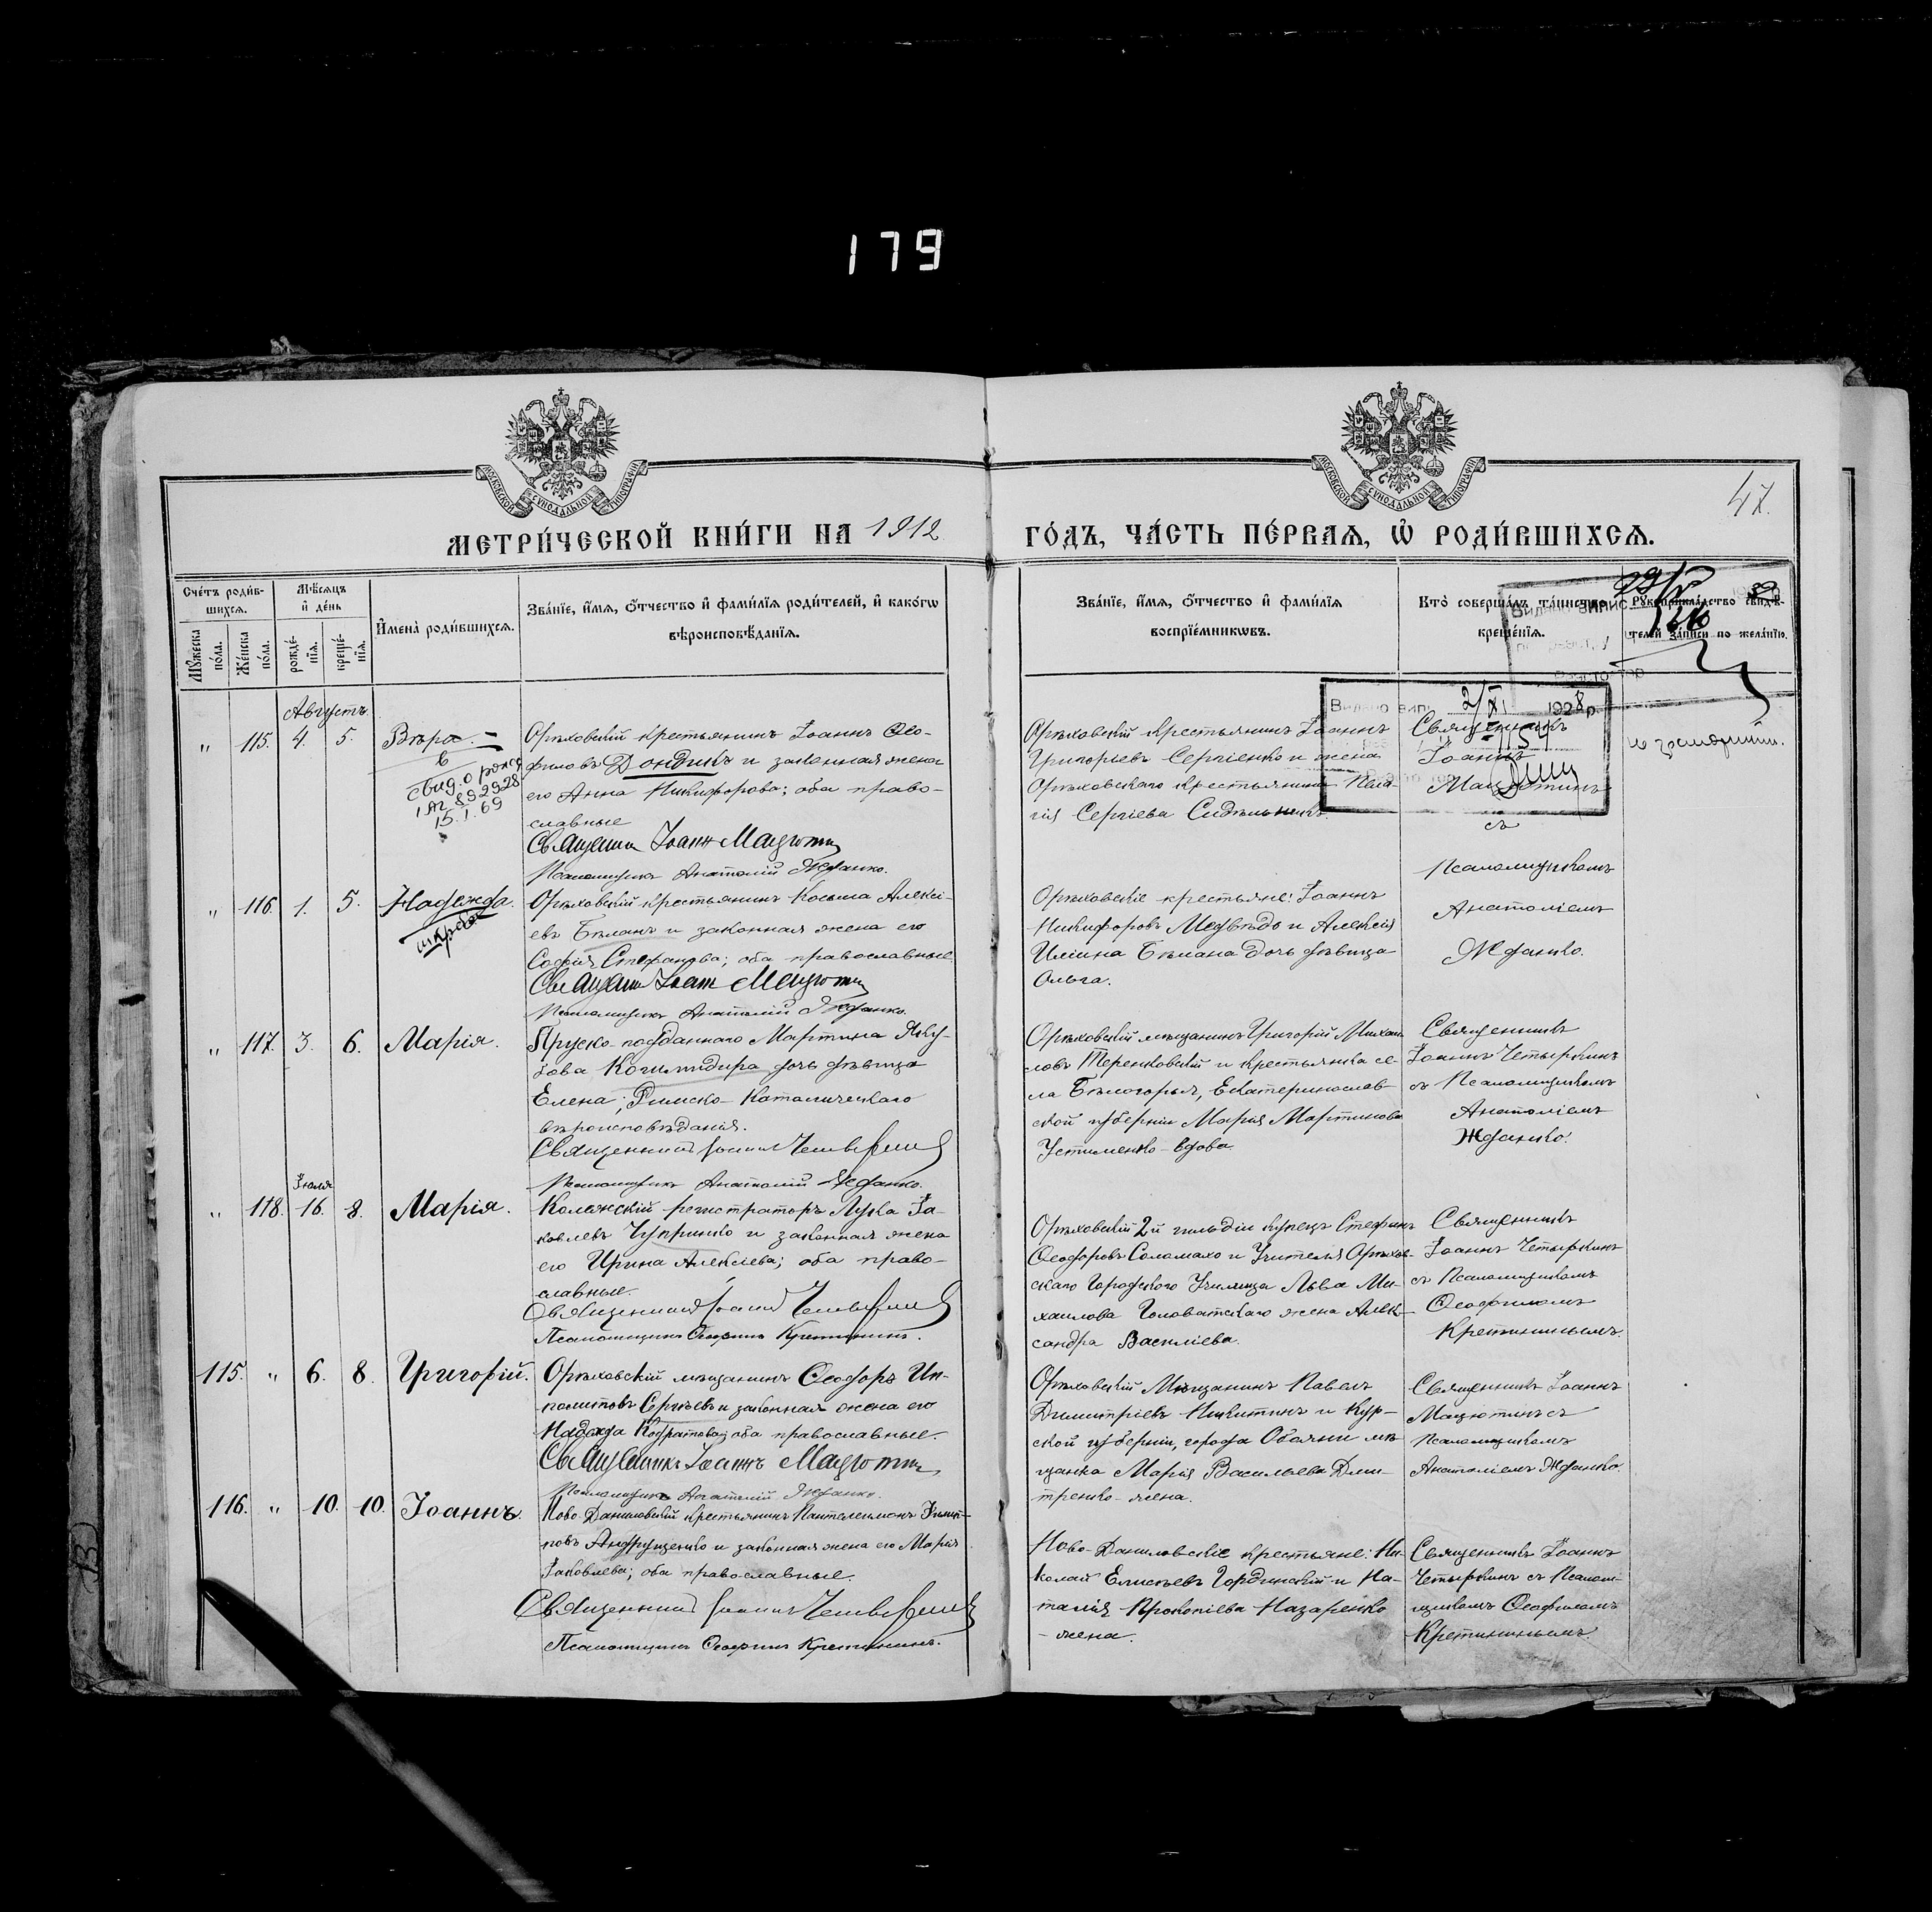 179
МОСКОВСКОЙ СѴНОДАЛЬНОЙ ТИПОГРАФІИ
МОСКОВСКОЙ СѴНОДАЛЬНОЙ ТИПОГРАФІИ
47.
МЕТРИ́ЧЕСКОЙ КНИ́ГИ НА 1912
ГО́ДЪ, ЧА́СТЬ ПЕ́РВАѦ, Ѡ҆ РОДИ́ВШИХСѦ.
Сче́тъ роди́в-
шихсѧ.
Мѣ́сѧцъ
и҆ де́нь
Мꙋ́жеска
по́ла.
Же́нска
по́ла.
рожде́-
нїѧ.
креще́-
нїѧ.
И҆мена̀ роди́вшихсѧ.
Зва́нїе, и҆́мѧ, ѻ҆́тчество и҆ фами́лїѧ роди́телей, и҆ како́гѡ
вѣроисповѣ́данїѧ.
Зва́нїе, и҆́мѧ, ѻ҆́тчество и҆ фами́лїѧ
воспрїе́мникѡвъ.
Кто̀ соверша́лъ та́инство
креще́нїѧ.
Рꙋкоприкла́дство свидѣ́-
телей за́писи по жела́нїю.
Видано випис
2/XI 1928 р.
1151
Августъ.
" 115. 4. 5. Вѣра.
свид. о рожд
892928
15.I.69
Орѣховскій крестьянинъ Іоаннъ Ѳео-
филовъ Дондикъ и законная жена
его Анна Никифорова; оба право-
славные
Священник Іоанн Мацютин
Псаломщикъ Анатолій Жданко.
Орѣховскій крестьянинъ Іоаннъ
Григорьевъ Сергіенко и жена
Орѣховскаго крестьянина Пела-
гія Сергіева
Священникъ
Іоаннъ
Мацютинъ
съ
Псаломщикомъ
Анатоліемъ
Жданко.
" 116. 1. 5. Надежда.
Орѣховскій крестьянинъ Косьма Алексі-
евъ Бѣланъ и законная жена его
Софія Стефанова; оба православные
Священник Іоанн Мацютин
Псаломщикъ Анатолій Жданко.
Орѣховскіе крестьяне: Іоаннъ
Никифоровъ Медвѣдь и Алексія
Иліина Бѣлана дочь дѣвица
Ольга.
" 117. 3. 6. Марія.
Пруско-подданнаго Мартина Яку-
бова дочь дѣвица
Елена; Римско-Католическаго
вѣроисповѣданія.
Священникъ Іоаннъ Четыркинъ
Псаломщикъ Анатолій Жданко.
Орѣховскій мѣщанинъ Григорій Михаи-
ловъ Теренковскій и крестьянка се-
ла Бѣлогорья, Екатеринослав-
ской губерніи Марія Мартинова
Устименко-вдова.
Священникъ
Іоаннъ Четыркинъ
съ Псаломщикомъ
Анатоліемъ
Жданко.
Іюля
" 118. 16. 8. Марія.
Колежскій регистраторъ Лука Іа-
ковлевъ Чупринко и законная жена
его Ирина Алексіева; оба право-
славные.
Священникъ Іоаннъ Четыркинъ
Псаломщикъ Ѳеофилъ Кретининъ.
Орѣховскій 2й гильдіи купецъ Стефанъ
Ѳеодоровъ Соломахо и Учителя Орѣхов-
скаго Городского Училища Льва Ми-
хаилова Головатскаго жена Алек-
сандра Василіева.
Священникъ
Іоаннъ Четыркинъ
съ Псаломщикомъ
Ѳеофиломъ
Кретининымъ.
115. " 6. 8. Григорій.
Орѣховскій мѣщанинъ Ѳеодоръ Ип-
политовъ Сергѣевъ и законная жена его
Надежда Кодратова; оба православные.
Священникъ Іоаннъ Мацютин
Псаломщикъ Анатолій Жданко.
Орѣховскій Мѣщанинъ Павелъ
Димитріевъ Никитинъ и Кур-
ской губерніи, города Обояни мѣ-
щанка Марія Васильева Дми-
тренко-жена.
Священникъ Іоаннъ
Мацютинъ съ
Псаломщикомъ
Анатоліемъ Жданко.
116. " 10. 10. Іоаннъ.
Ново-Даниловскій крестьянинъ Пантелеимонъ Филип-
повъ Андрущенко и законная жена его Марія
Іаковлева; оба православные.
Священникъ Іоаннъ Четыркинъ
Псаломщикъ Ѳеофилъ Кретининъ.
Ново-Даниловскіе крестьяне: Ни-
колай Елисѣевъ Гординскій и На-
талія Прокопіева Назаренко
-жена.
Священникъ Іоаннъ
Четыркинъ съ Псалом-
щикомъ Ѳеофиломъ
Кретининымъ.